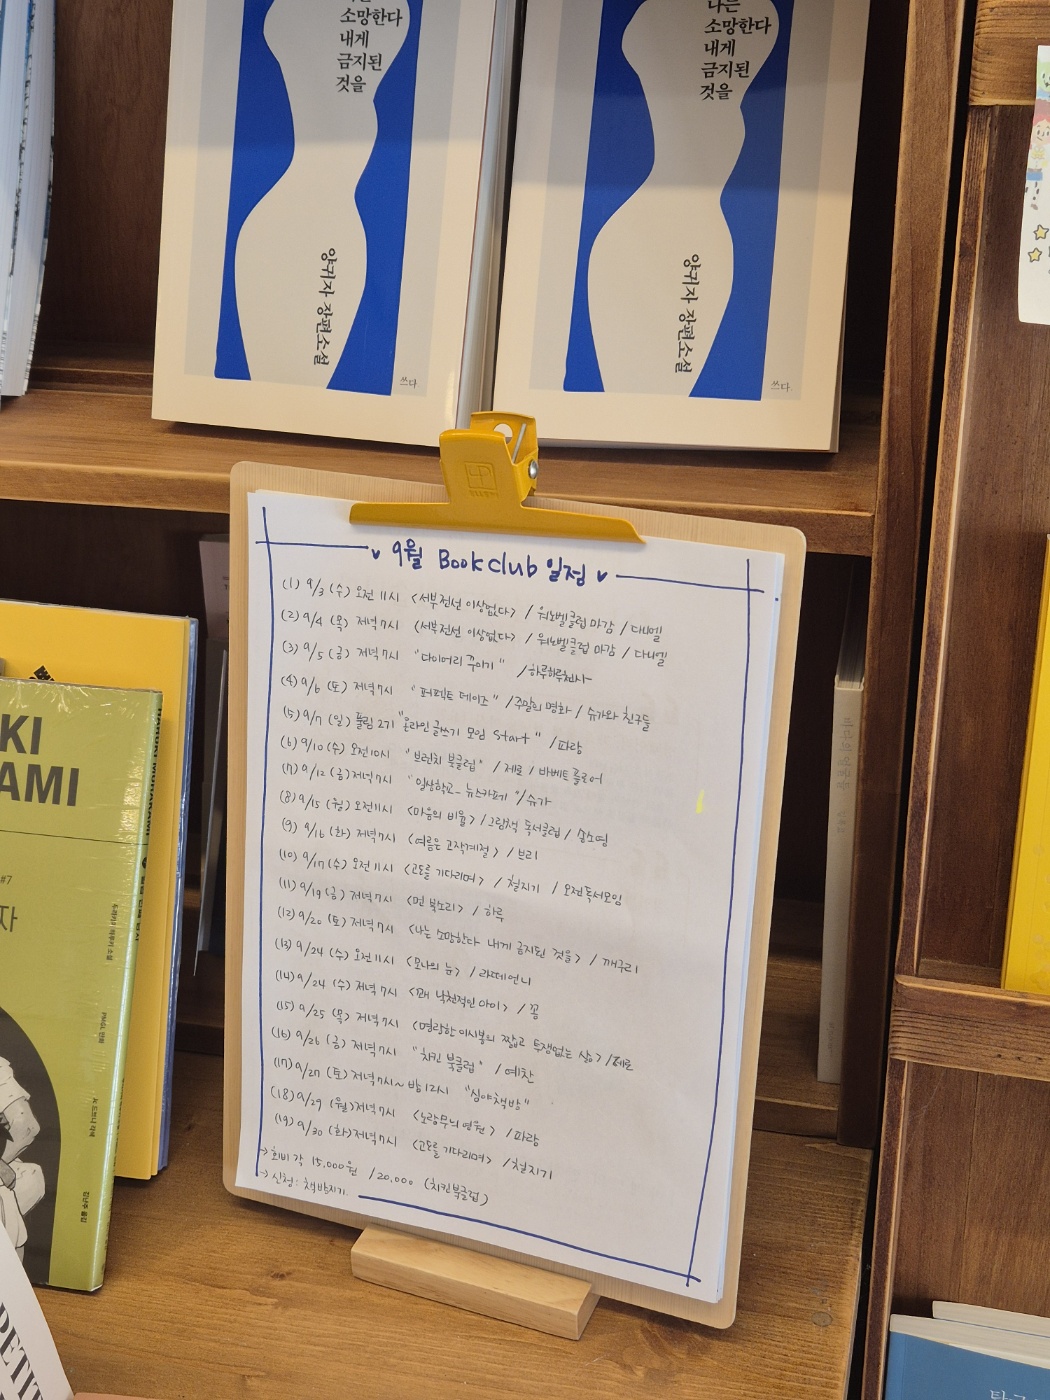 소망한다
내게
금지된
것을
양귀자 장편소설
쓰다
나는
소망한다
내게
금지된
것을
양귀자 장편소설
쓰다
9월 Book club 일정
(1) 9/3 (수) 오전 11시 <서부전선 이상없다> / 워노벨클럽 마감 / 다니엘
(2) 9/4 (목) 저녁 7시 (서부전선 이상없다> / 워노벨클럽 마감 / 다니엘
(3) 9/5 (금) 저녁 7시 "다이어리 꾸미기" / 하루하루천사
(4) 9/6 (토) 저녁 7시 "퍼펙트 데이즈" / 주말의 명화 / 슈가와 친구들
(5) 9/7 (일) 풀림 2기 "온라인 글쓰기 모임 Start" / 파랑
(6) 9/10 (수) 오전 10시 "브런치 북클럽" / 제로 / 바베트
(7) 9/12 (금) 저녁 7시 "일상학교_뉴스카페" / 슈가
(8) 9/15 (월) 오전 11시 <마음의 비율> / 그림책 독서클럽 / 송소영
(9) 9/16 (화) 저녁 7시 <여름은 고작계절> / 브리
(10) 9/17 (수) 오전 11시 <고도를 기다리며> / 철지기 / 오전독서모임
(11) 9/19 (금) 저녁 7시 <먼 북소리> / 하루
(12) 9/20 (토) 저녁 7시 <나는 소망한다 내게 금지된 것을> / 깨구리
(13) 9/24 (수) 오전 11시 <모나의 눈> / 라떼언니
(14) 9/24 (수) 저녁 7시 <꽤 낙천적인 아이> / 꽁
(15) 9/25 (목) 저녁 7시 <명랑한 이시봉의 짧고 투쟁없는 삶> / 제로
(16) 9/26 (금) 저녁 7시 "치킨 북클럽" / 예찬
(17) 9/27 (토) 저녁 7시~ 밤 12시 "심야책방"
(18) 9/29 (월) 저녁 7시 <노랑무늬영원> / 파랑
(19) 9/30 (화) 저녁 7시 <고도를 기다리며> / 철지기
→ 회비 각 15,000원 / 20,000 (치킨북클럽)
→ 신청: 책방지기
KI
AMI
#7
자
HARUKI MURAKAMI